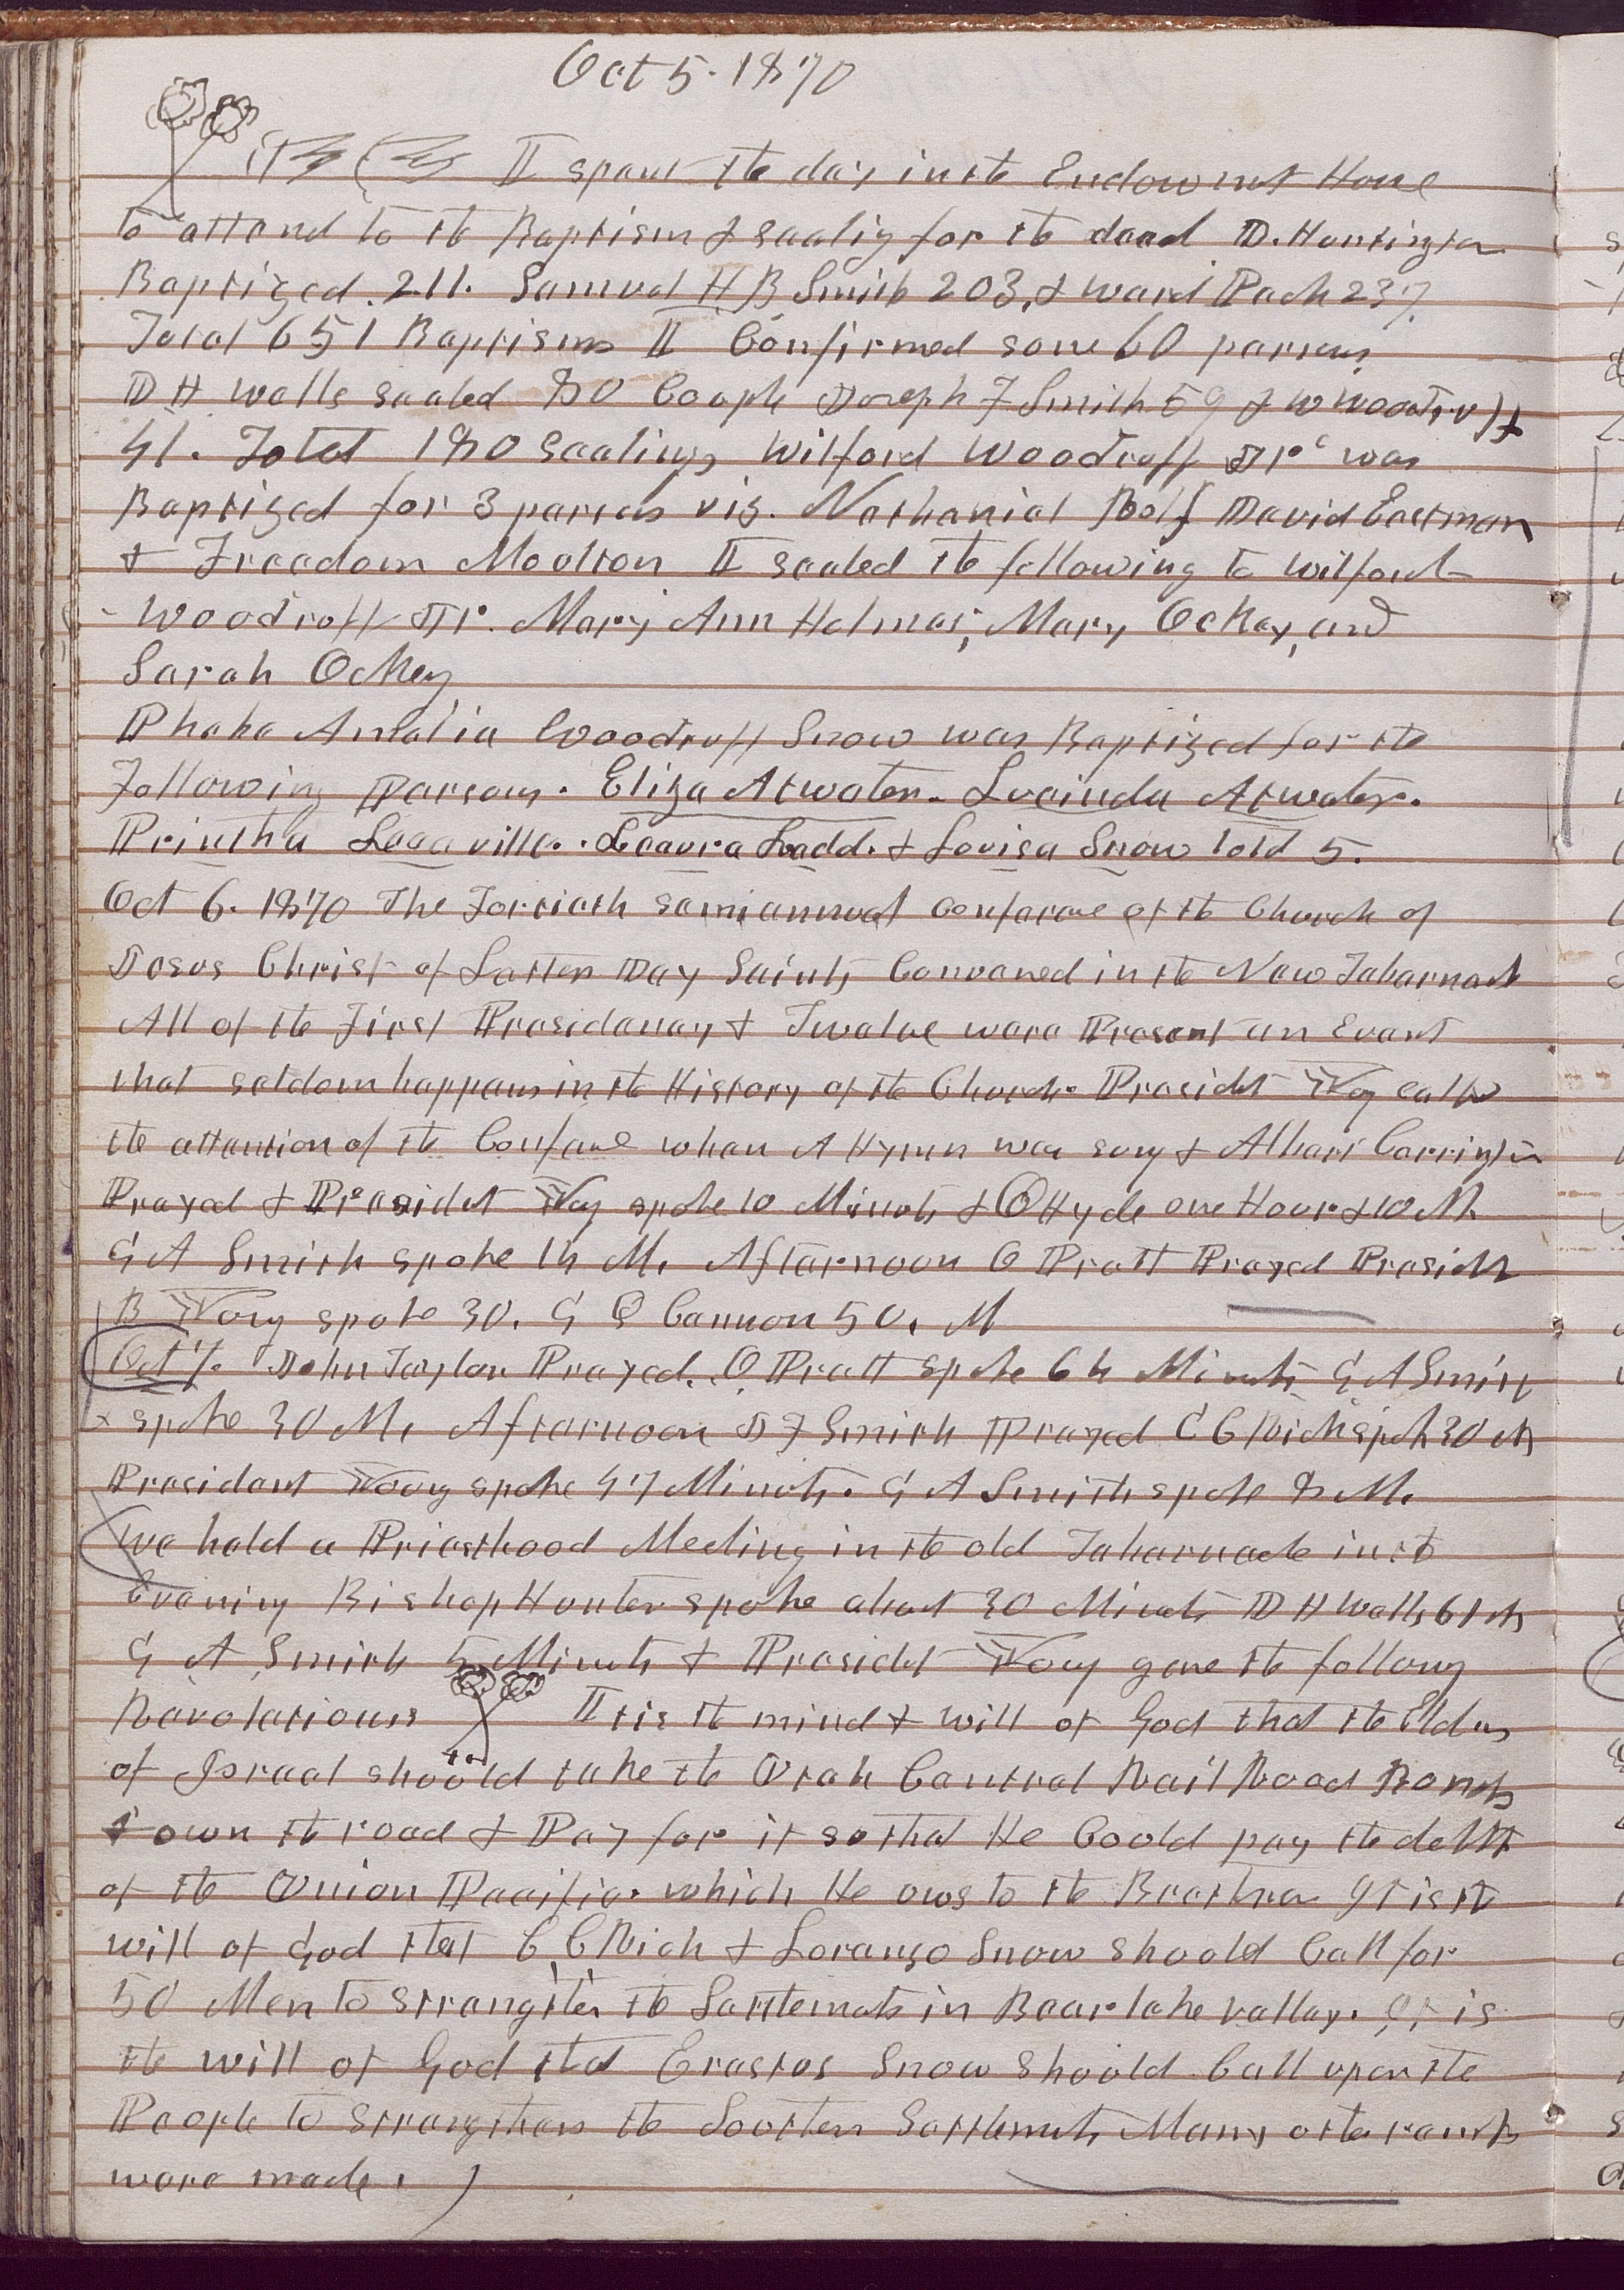 Oct 5. 1870
I spent the day in the Endowmet House
to attend to the Baptism & sealig for the dead D. Huntington
Baptized 211. Samuel H B Smith 203, & Ward Pack 237.
Total 651 Baptisms I Confirmed some 60 persons,
D H Wells sealed 80 Couple Joseph F Smith 59 & W Woodruff
41. Total 180 Sealings Wilford Woodruff Jr was
Baptized for 3 persons viz. Nathaniel Rolf David Eastman
& Freedom Moulton I sealed the following to Wilford
Woodruff Jr. Mary Ann Holmes, Mary Ockey, and
Sarah Ockey
Phebe Amelia Woodruff Snow was Baptized for the
Following Persons. Eliza Atwater. Lucinda Atwater.
Printha Leavill. Leaura Ladd. & Lovisa Snow total 5.
Oct 6. 1870 The Fortieth semiannual Conferene of the Church of
Jesus Christ of Latter Day Saints Convened in the New Tabernacle
All of the First Presidency & Twelve were Present an Event
that seldom happens in the History of the Church. Presidet Yog called
the attention of the Conferene when A Hymn was sung & Albert Carrington
Prayed & Presidet Yog spoke 10 Minuts & O Hyde one Hour & 10 M.
G A Smith spoke 14 M. Afternoon O Pratt Prayed Presidet
B Young spoke 30. G Q Cannon 50. M
Oct 7. John Taylor Prayed. O. Pratt spoke 64 Minuts G A Smith
spoke 30 M. Afternoon J F Smith Prayed C C Rich spoke 30 M
President Young spoke 47 Minuts. G A Smith spoke 8 M.
We held a Priesthood Meeting in the old Tabernacle in the
Evening Bishop Hunter spoke about 30 Minuts D H Wells 61 M
G A Smith 5 Minuts & Presidet Young gave the followig
Revelations It is the mind & will of God that the Elders
of Israel should take the Utah Central Rail Road Bonds
& own the road & Pay for it so that He Could pay the debts
of the Union Pacific. which He ows to the Brethren It is the
will of God that C C Rich & Lorenzo Snow should Call for
50 Men to strengthen the Settlements in Bear lake valley. It is
the will of God that Erastus Snow should Call upon the
People to strengthen the Southern Settlements, Many other remarks
were made.